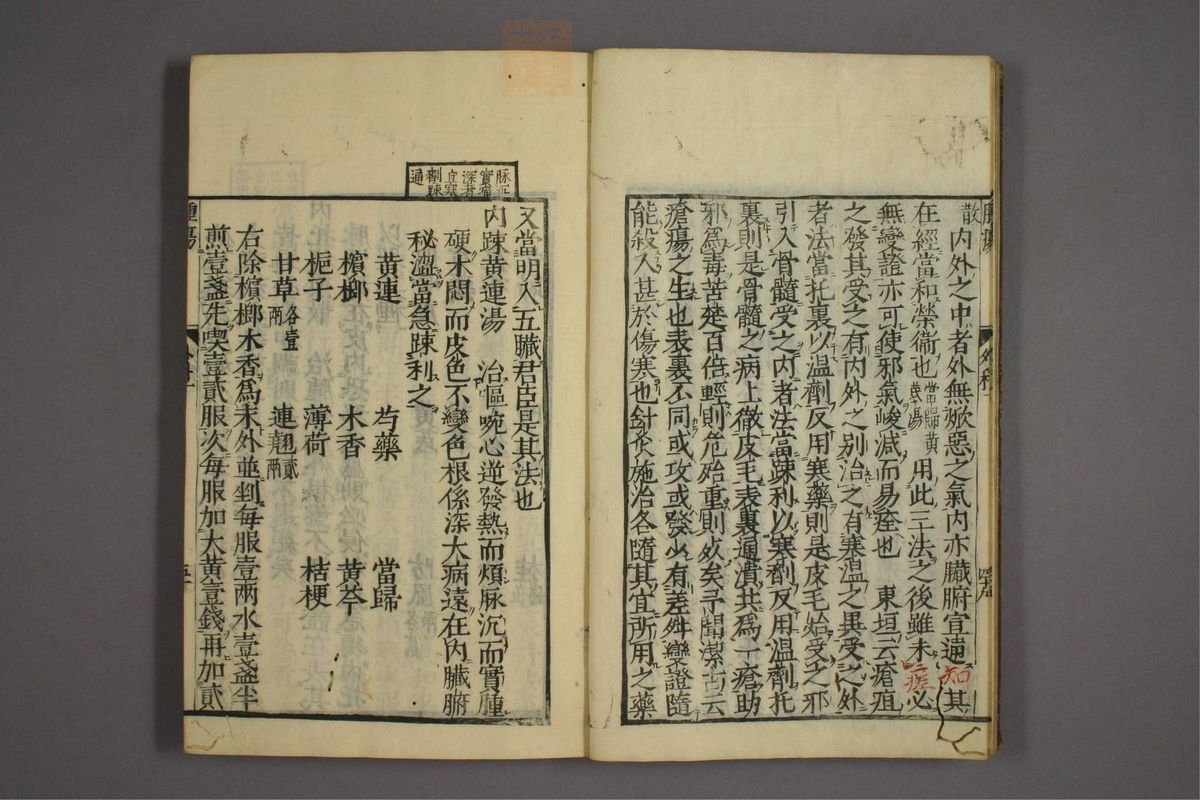 散内外之中者外無焮惡之氣内亦臟腑宣通知其
在經當和榮衞也當歸黄芪湯用此三法之後雖未瘥必
無變證亦可使邪氣峻減而易痊也 東垣云瘡疽
之發其受之有内外之别治之有寒温之異受之外
者法當托裏以温劑反用寒藥則是皮毛始受之邪
引入骨髓受之内者法當踈利以寒劑反用温劑托
裏則是骨髓之病上徹皮毛表裏通潰共爲一瘡助
邪爲毒苦楚百倍輕則危殆重則死矣予聞潔古云
瘡瘍之生也表裏不同或攻或發少有差舛變證隨
能殺人甚於傷寒也針灸施治各隨其宜所用之藥
脉沉實瘡深者宜寒劑踈通
又當明入五臟君臣是其法也
内踈黄連湯 治傴啘心逆發熱而煩脉沉而實腫
硬木悶而皮色不變色根係深大病遠在内臟腑
秘澀當急踈利之
黄連 芍藥 當歸
檳榔 木香 黄芩
梔子 薄荷 桔梗
甘草各壹兩 連翹貳兩
右除檳榔木香爲末外並剉每服壹兩水壹盞半
煎壹盞先喫壹貳服次每服加大黄壹錢再加貳
腫瘍